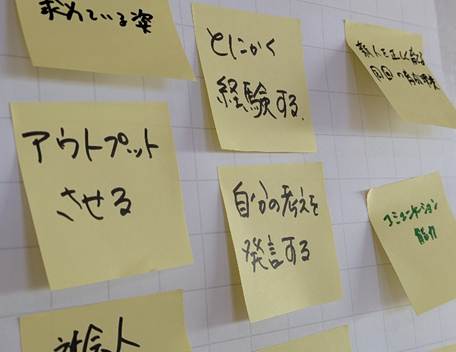 求めている姿
とにかく
経験する.
新人を正しく
アウトプット
させる
自分の考えを
発言する
コミュニケーション
能力
社会人